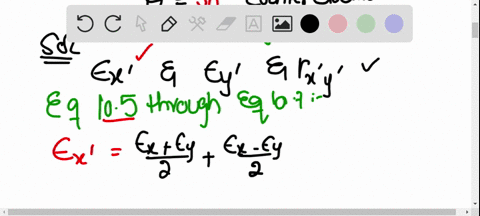 Sol
ϵx' & ϵy' & rx'y' ✓
Eq 10.5 through Eq 10.7 :-
ϵx' = ϵx+ϵy/2 + ϵx-ϵy/2